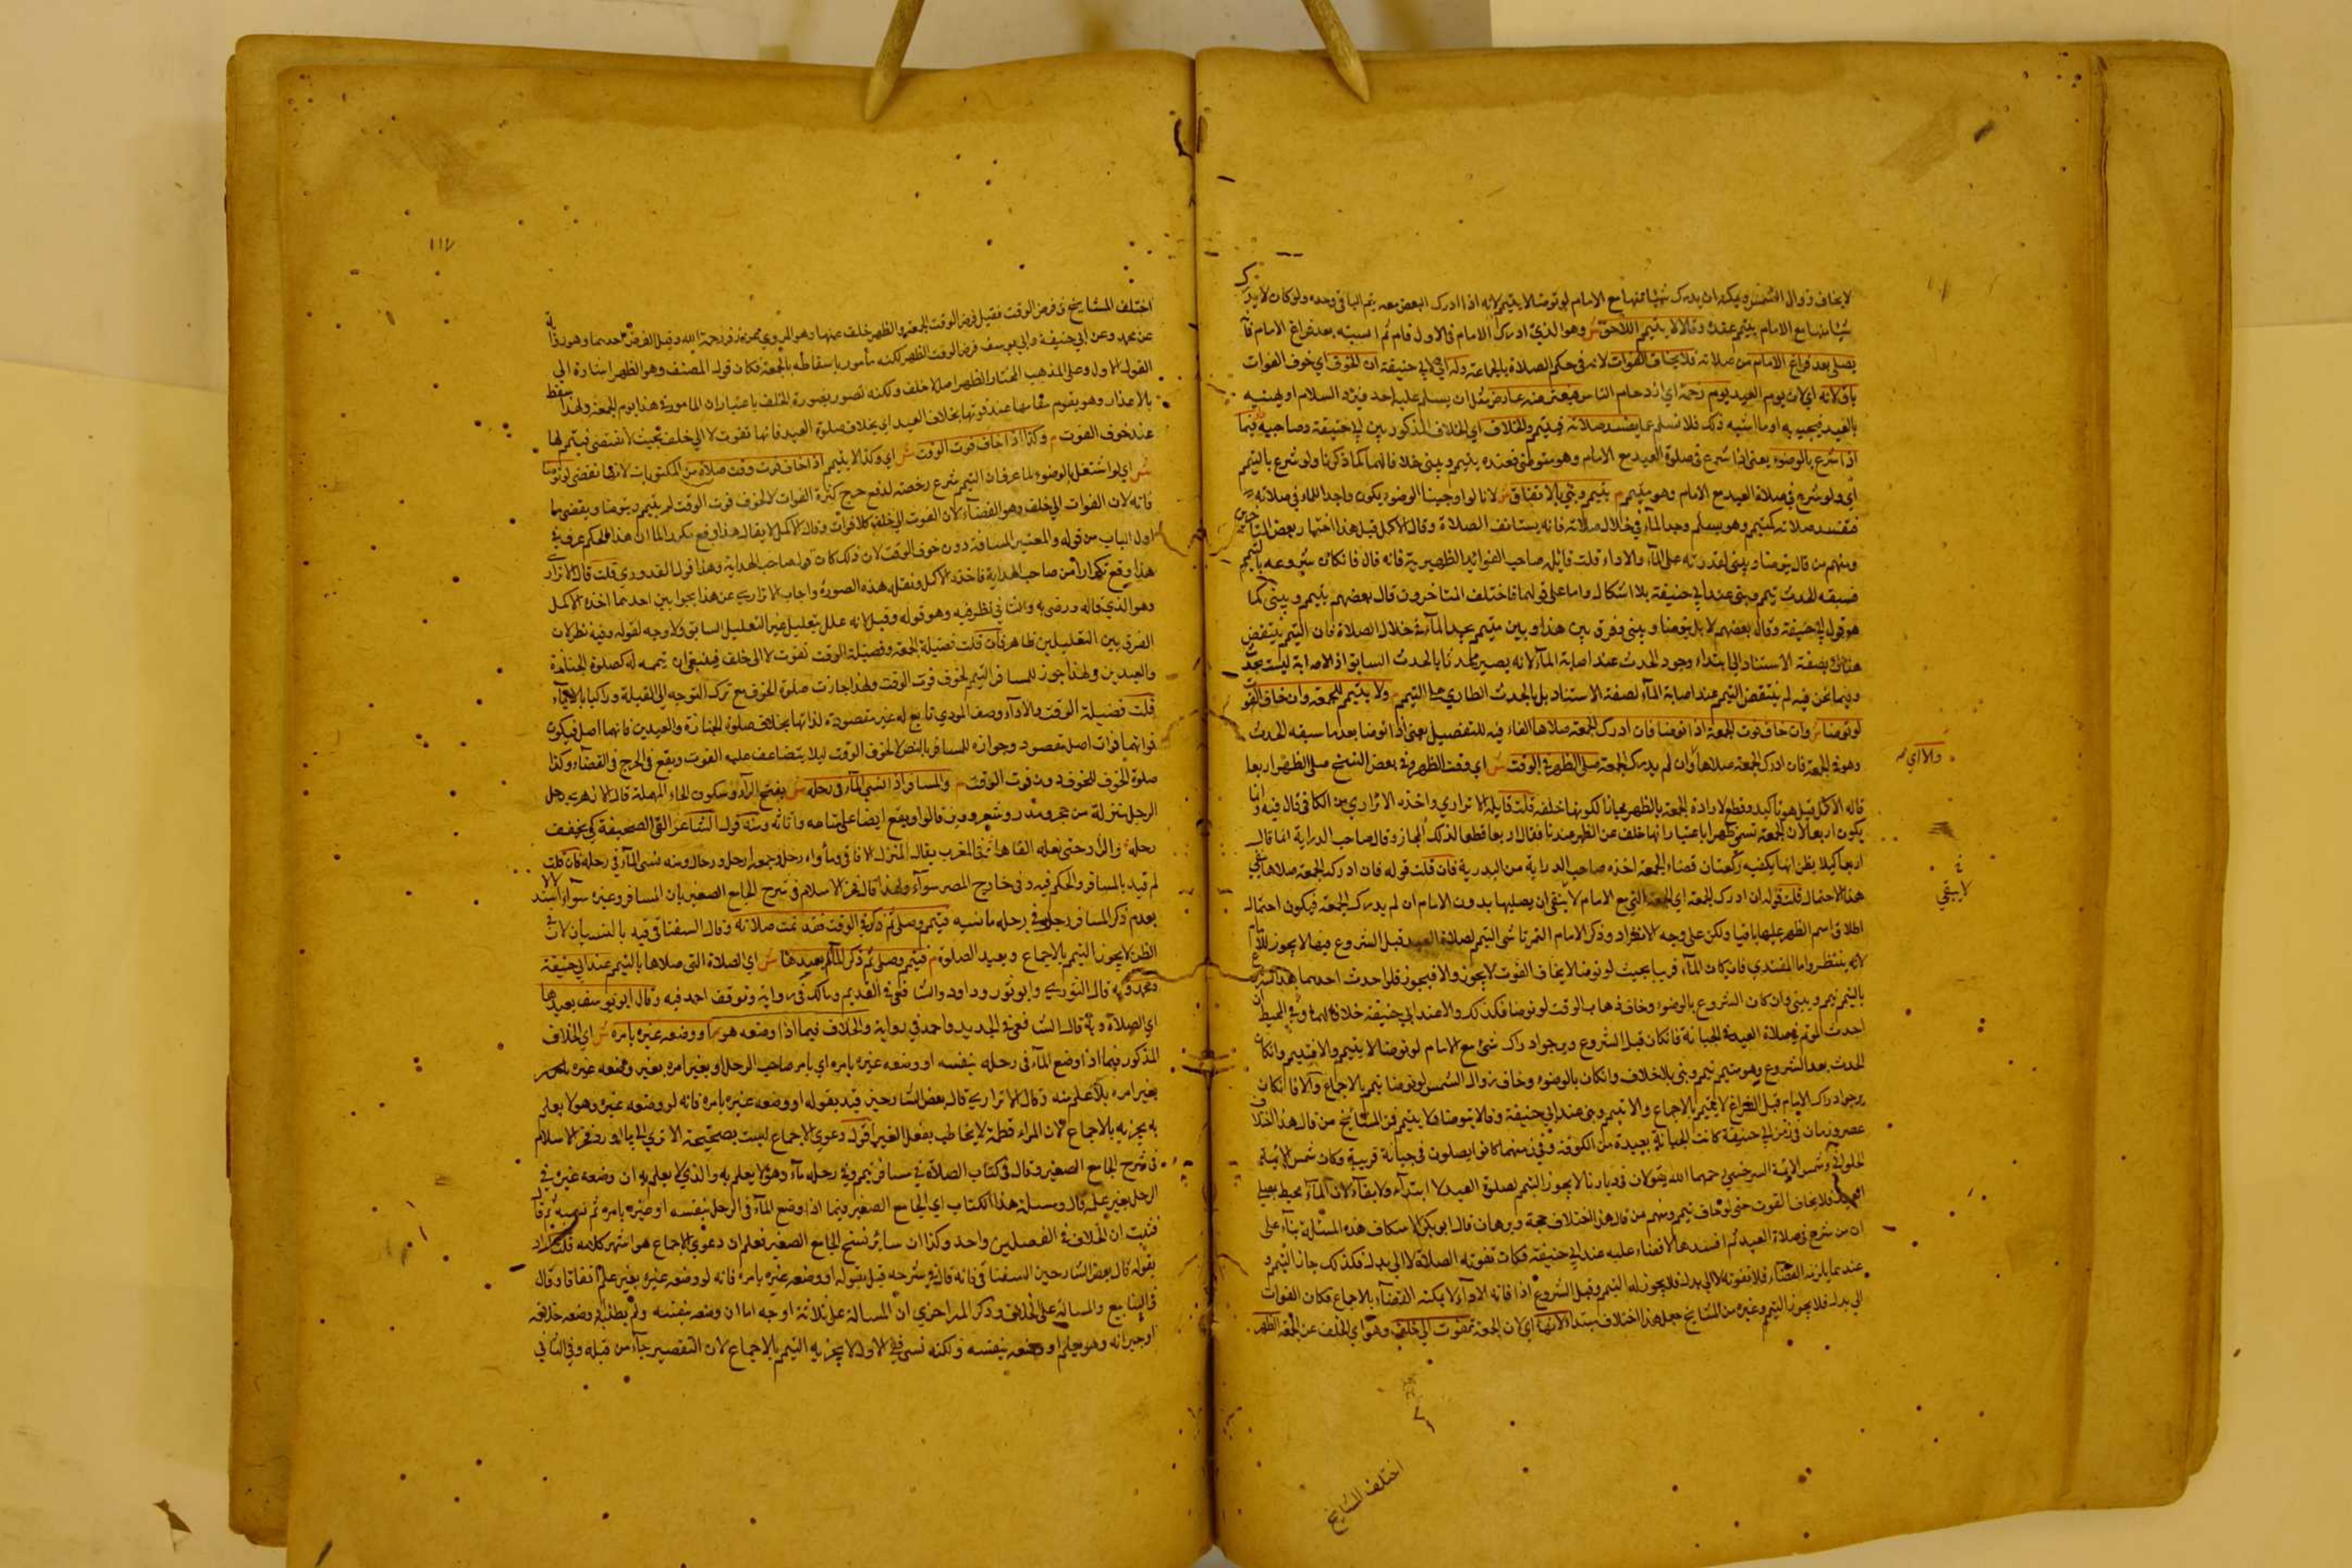 لا يخاف زوال الشمس ويمكنه ان يدرك شيئا منها مع الامام لو توضا لا يتيمم لانه اذا ادرك البعض معه يتم الباقي وحده ولو كان لا يدرك
شيئا منها مع الامام يتيمم عنده وقالا لا يتيمم اللاحق ش وهو الذي ادرك الامام في الاول فنام ثم انتبه بعد فراغ الامام م
يصلي بعد فراغ الامام من صلاته فلا يخاف الفوات لانه في حكم الصلاة بالجماعة وله اي لابي حنيفة ان الخوف اي خوف الفوات
باق لانه اي لان يوم العيد يوم زحمة اي ازدحام الناس فيعتريه عارض مثل ان يسلم عليه احد فيرد السلام او يهنيه
بالعيد فيجيبه او ما اشبه ذلك فلا تسلم عما يفسد صلاته فيتيمم والخلاف اي الخلاف المذكور بين ابي حنيفة وصاحبيه فيما
اذا شرع بالوضوء يعني اذا شرع في صلوة العيد مع الامام وهو متوضئ فعنده يتيمم ويبني خلافا لهما كما ذكرنا ولو شرع بالتيمم
اي ولو شرع في صلاة العيد مع الامام وهو متيمم م يتيمم ويبني بالاتفاق ش لانا لو اوجبنا الوضوء يكون واجدا للماء في صلاته
فتفسد صلاته كمتيمم وهو يصلي وجد الماء في خلال صلاته فانه يستانف الصلاة وقال الاكمل قيل هذا اختيار بعض المتاخرين
ومنهم من قال يتوضا ويبني لقدرته على الماء والاداء قلت قايله صاحب الفوائد الظهيرية فانه قال فان كان شروعه بالتيمم
فسبقه الحدث تيمم وبنى عند ابي حنيفة بلا اشكال واما على قولهما فاختلف المتاخرون قال بعضهم يتيمم ويبني كما
هو قول ابي حنيفة وقال بعضهم لا بل يتوضا ويبني وفرق بين هذا وبين متيمم يجد الماء في خلال الصلاة فان التيمم ينتقض
هناك بصفة الاستناد الى ابتداء وجود الحدث عند اصابة الماء لانه يصير محدثا بالحدث السابق اذ الاصابة ليست بحدث
وفيما نحن فيه لم ينتقض التيمم عند اصابة الماء بصفة الاستناد بل بالحدث الطاري على التيمم م ولا يتيمم للجمعة وان خاف الفوت
لو توضا ش وان خاف فوت الجمعة اذا توضا فان ادرك الجمعة صلاها الفاء فيه للتفصيل يعني اذا توضا بعد ما سبقه الحدث
وهو في الجمعة فان ادرك الجمعة صلاها وان لم يدرك الجمعة صلى الظهر في الوقت ش اي وقت الظهر وفي بعض النسخ صلى الظهر اربعا
قاله الاكمل قيل هو تاكيد وقطع لارادة الجمعة بالظهر مجازا لكونها خلفه قلت قايله الاتراري واخذه الاتراري من الكافي قال فيه وانما
يكون اربعا لان الجمعة تسمى ظهرا باعتبار انها خلف عن الظهر عندنا فقال اربعا قطعا لذلك المجاز وقال صاحب الدراية انما قال
اربعا كيلا يظن انها يكفيه ركعتان قضاء الجمعة اخذه صاحب الدراية من البدرية فان قلت قوله فان ادرك الجمعة صلاها ينفي
هذا الاحتمال قلت قوله ان ادرك الجمعة اي الجمعة التي مع الامام لا ينفي ان يصليها بدون الامام ان لم يدرك الجمعة فيكون احتمال
اطلاق اسم الظهر عليها باقيا ولكن على وجه الانفراد وذكر الامام التمرتاشي التيمم لصلاة العيد قبل الشروع فيها لا يجوز للامام
لانه ينتظر واما المقتدي فان كان الماء قريبا بحيث لو توضا لا يخاف الفوت لا يجوز والا فيجوز فلو احدث احدهما بعد الشروع
بالتيمم تيمم ويبني وان كان الشروع بالوضوء وخاف ذهاب الوقت لو توضا فكذلك والا عند ابي حنيفة خلافا لهما وفي المحيط ان
احدث المؤتم في صلاة العيد في الجبانة فان كان قبل الشروع ويرجو ادراك شئ مع الامام لو توضا لا يتيمم والا فيتيمم وان كان
الحدث بعد الشروع وهو متيمم تيمم وبنى بلا خلاف وان كان بالوضوء وخاف زوال الشمس لو توضا تيمم بالاجماع والا فان كان
يرجو ادراك الامام قبل الفراغ لا يتيمم بالاجماع والا تيمم وبنى عند ابي حنيفة وقالا يتوضا ولا يتيمم فمن المشايخ من قال هذا اختلاف
عصر وزمان في زمن ابي حنيفة كانت الجبانة بعيدة من الكوفة وفي زمنهما كانوا يصلون في جبانة قريبة وكان شمس الائمة
الحلواني وشمس الائمة السرخسي رحمهما الله يقولان في ديارنا لا يجوز التيمم لصلوة العيد لا ابتداء ولا بقاء لان الماء محيط بمصلى
العيد فلا يخاف الفوت حتى لو خاف تيمم ومنهم من قال هذا اختلاف حجة وبرهان قال ابو بكر الاسكاف هذه المسئلة بناء على
ان من شرع في صلاة العيد ثم افسدها لا قضاء عليه عند ابي حنيفة فكان تفوته الصلاة لا الى بدل فكذلك جاز التيمم و
عندهما يلزمه القضاء فلا تفوته لا الى بدل فلا يجوز له التيمم وقبل الشروع اذا فاته الاداء لا يمكنه القضاء بالاجماع فكان الفوات
الى بدل فلا يجوز التيمم وغيره من المشايخ جعل هذا اختلاف مبتدأ لانها اي لان الجمعة تفوت الى خلف وهو اي الخلف عن الجمعة الظهر
والا اي
لا يبقي
اختلف المشايخ
١١٧
اختلف المشايخ في فرض الوقت فقيل فرض الوقت الجمعة والظهر خلف عنها وهو المروي عن زفر رحمه الله وقيل الفرض احدهما وهو رواية
عن محمد وعن ابي حنيفة وابي يوسف فرض الوقت الظهر لكنه مأمور باسقاطه بالجمعة فكان قول المصنف وهو الظهر اشارة الى
القول الاول وعلى المذهب المختار الظهر اصل لا خلف ولكنه تصور بصورة الخلف باعتبار ان المامور به هذا يوم الجمعة ولهذا يسقط
بالاعذار وهو يقوم مقامها عند فوتها بخلاف العيد اي بخلاف صلوة العيد فانها تفوت لا الى خلف بحيث لا تقضى فيتيمم لها
عند خوف الفوت م وكذا اذا خاف فوت الوقت ش اي وكذا لا يتيمم اذا خاف فوت وقت صلاة من المكتوبات لانها تقضى لو توضا
ش اي لو اشتغل بالوضوء لما عرف ان التيمم شرع رخصة لدفع حرج كثرة الفوات لا لخوف فوت الوقت لم يتيمم ويتوضا ويقضي ما
فاته لان الفوات الى خلف وهو القضاء لان الفوت الى خلف كلا فوات وقال الاكمل لا يقال هذا وقع مكررا لما ان هذا الحكم عرف في
اول الباب من قوله والمعتبر المسافة دون خوف الوقت لان ذلك كان قول صاحب الهداية وهذا قول القدوري قلت قال الاتراري
هذا وقع تكرارا من صاحب الهداية فاخذه الاكمل ونقله بهذه الصورة واجاب الاتراري عن هذا بجوابين احدهما اخذه الاكمل
وهو الذي قاله ورضي به والثاني نظر فيه وهو قوله وقيل لانه علل بتعليل غير التعليل السابق ولا وجه لقوله وفيه نظر لان
الفرق بين التعليلين ظاهر فان قلت فضيلة الجمعة وفضيلة الوقت تفوت لا الى خلف فينبغي ان تيمم له كصلوة الجنازة
والعيدين ولهذا جوز للمسافر التيمم لخوف فوت الوقت ولهذا جازت صلوة الخوف مع ترك التوجه الى القبلة وراكبا بالايماء
قلت فضيلة الوقت والاداء وصف المودي تابع له غير مقصودة لذاتها بخلاف صلوة الجنازة والعيدين فانهما اصل فيكون
فواتهما فوات اصل مقصود وجوازه للمسافر بالنص لا لخوف الوقت ليلا يتضاعف عليه الفوت ويقع في الحرج في القضاء وكذا
صلوة الخوف للخوف دون فوت الوقت م والمسافر اذا نسي الماء في رحله ش بفتح الراء وسكون الحاء المهملة قال الازهري رحل
الرجل منزله من حجر ومدر وشعر ووبر قالوا ويقع ايضا على متاعه واثاثه ومنه قول الشاعر القى الصحيفة كي يخفف
رحله والزاد حتى نعله القاها في المغرب يقال لمنزل الانسان ومأواه رحل وجمعه ارحل ورحال ومنه نسي الماء في رحله فان قلت
لم قيد بالمسافر والحكم فيه وفي خارج المصر سواء ولهذا قال فخر الاسلام في شرح الجامع الصغير بان المسافر وغيره سواء
فتيمم وصلى ثم ذكر في الوقت فقد تمت صلاته وقال السغناقي قيد بالنسيان لان في
الظن لا يجوز التيمم بالاجماع ويعيد الصلوة م فتيمم وصلى ثم ذكر الماء لم يعدها ش اي الصلاة التي صلاها بالتيمم عند ابي حنيفة
ومحمد وبه قال الثوري وابو ثور وداود والشافعي في القديم ومالك في رواية وتوقف احمد فيه وقال ابو يوسف يعيدها
اي الصلاة وبه قال الشافعي في الجديد واحمد في رواية والخلاف فيما اذا وضعه هو او وضعه غيره بامره ش اي الخلاف
المذكور فيما اذا وضع الماء في رحله بنفسه او وضعه غيره بامره اي بامر صاحب الرحل او بغير امره
بغير امره بلا علم منه وقال الاتراري قال بعض الشارحين قيد بقوله او وضعه غيره بامره فانه لو وضعه غيره وهو لا يعلم
به يجزيه بالاجماع لان المراد فطنة لا يخاطب بفعل الغير اقول دعوى الاجماع ليست بصحيحة الا ترى الى ما اورد فخر الاسلام
في شرح الجامع الصغير وقال في كتاب الصلاة في مسافر تيمم وفي رحله ماء وهو لا يعلم به والذي لا يعلم به ان وضعه غيره في
الرحل بغير علمه قال ومسئلة هذا الكتاب اي الجامع الصغير فيما اذا وضع الماء في الرحل بنفسه او غيره بامره ثم نسيه ثم قال
فثبت ان الخلاف في الفصلين واحد وكذا ان سائر نسخ الجامع الصغير فعلم ان دعوى الاجماع هو اشهر كلامه قلت اراد
بقوله قال بعض الشارحين السغناقي فانه قال في شرحه قيل بقوله او وضعه غيره بامره فانه لو وضعه غيره بغير علمه اتفاقا وقال
في الينابيع والمسالة على الخلاف وذكر المراحزي ان المسالة على ثلاثة اوجه اما ان وضعه بنفسه ولم يطلبه او وضعه خادمه
او اجيرانه وهو يعلم او وضعه بنفسه ولكنه نسي ففي الاول لا يجزيه التيمم بالاجماع لان التقصير جاء من قبله وفي الثاني